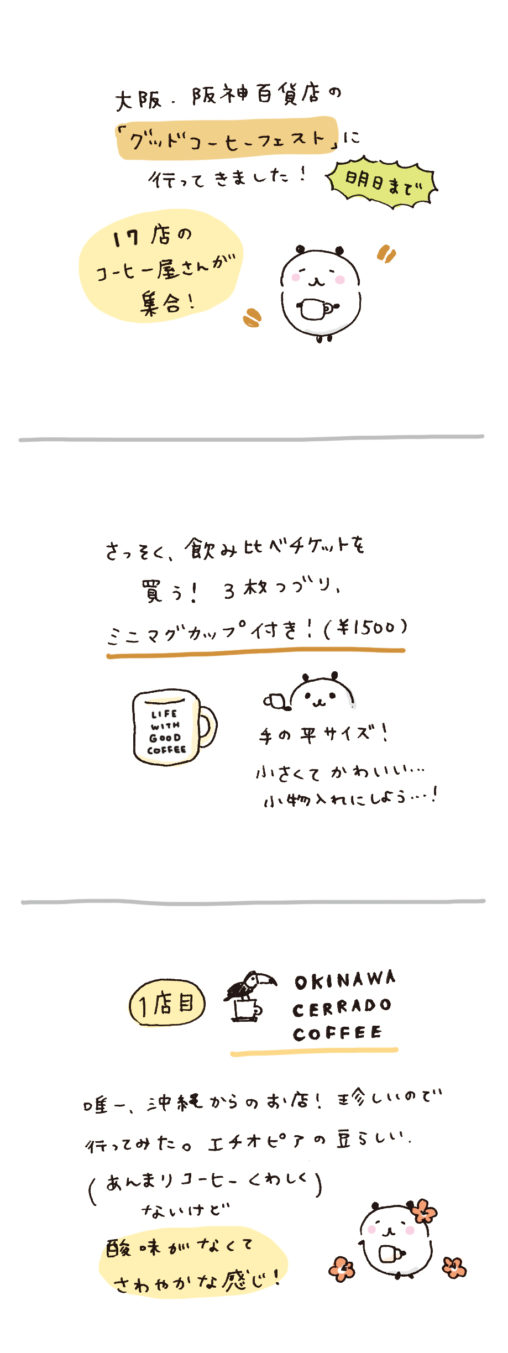 大阪.阪神百貨店の
「グッドコーヒーフェスト」に
行ってきました!
明日まで
17店の
コーヒー屋さんが
集合!
さっそく、飲み比べチケットを
買う! 3枚つづり、
ミニマグカップ付き!(¥1500)
LIFE
WITH
GOOD
COFFEE
手の平サイズ!
小さくてかわいい…
小物入れにしよう…!
1店目
OKINAWA
CERRADO
COFFEE
唯一、沖縄からのお店!珍しいので
行ってみた。エチオピアの豆らしい.
(あんまりコーヒーくわしく
ないけど)
酸味がなくて
さわやかな感じ!